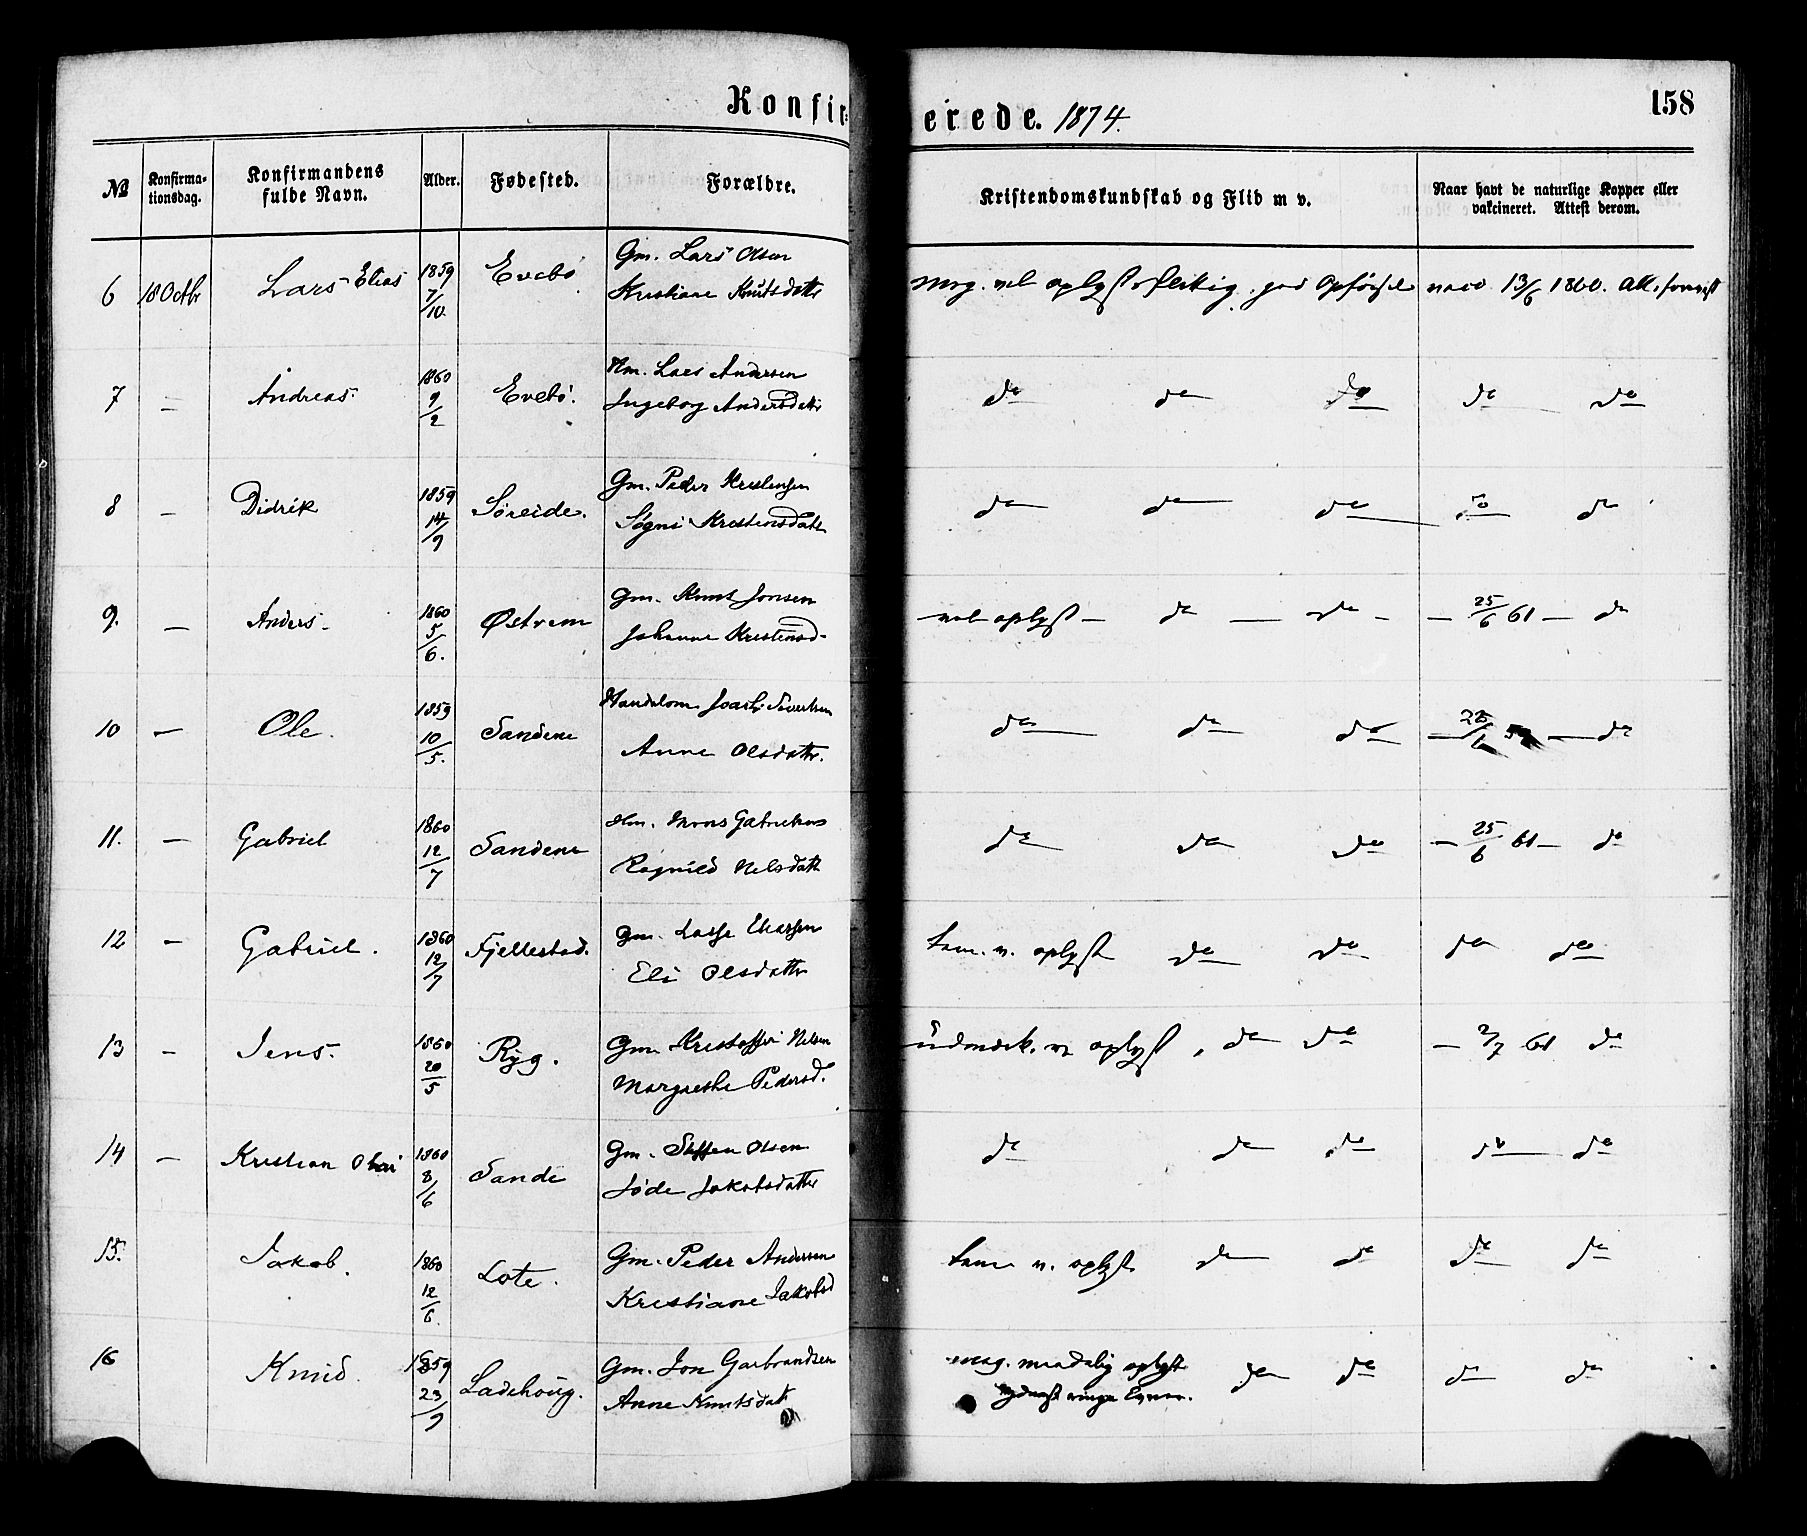 Konfir- erede. 1874. 158
№ Konfirma-tionsdag. Konfirmandens fulde Navn. Alder. Fødested. Forældre. Kristendomskundskab og Flid m v. Naar havt de naturlige Kopper eller vakcineret. Attest derom.
6 18 Octbr Lars Elias 1859 7/10 Evebø Gm. Lars Olsen
Kristiane Knutsdatter meg. vel oplyst flitig. god Opførsel vacc 13/6 1860. Att.
7 – Andreas 1860 9/2 Evebø. Hm. Lars Andersen
Ingeborg Andersdatter do do do do do
8 – Didrik 1859 14/9 Søreide. Gm. Peder Kristensen
Søgni Kristensdatt do do do do do
9. – Anders 1860 5/6. Østrem Gm. Knut Jonsen
Johanne Kristensd- vel oplyst – do – do – – 25/6 61 – do
10 – Ole. 1859 10/5. Sandene Sivertsen
Anne Olsdatter. do do do do
11. – Gabriel 1860 12/7 Sandene Hm. Mons Gabrielsen
Ragnild Nilsdatt do do do – 25/6 61 – do
12 – Gabriel. 1860 12/7 Fjellestad. Gm. Lasse Eliassen
Eli Olsdatter tem. v. oplyst do do do do
13 – Jens. 1860 20/5 Ryg. Gm. Kristoffer Nilsen
Margrethe Pedersd. udmærk. v. oplyst, do do – 2/7 61 do
14 – Kristian 1860 8/6 Sande Gm. Steffen Olsen
Jøde Jakobsdatter do do do do do
15. Jakob. 1860 12/6. Lote. Gm. Peder Andersen
Kristiane Jakobsd tem v. oplyst do do do do
16 Knud. 1859 23/9 Ladehoug. Gm. Jon Garbrandsen
Anne Knutsdatt meg. maadelig oplyst do do do do
ringe Evner.